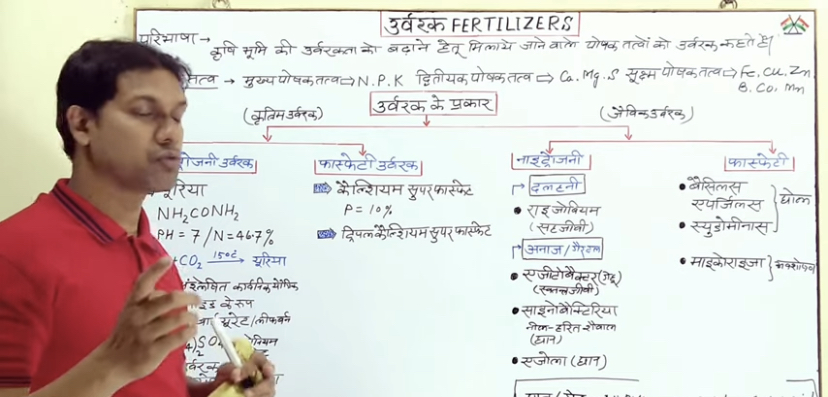 उर्वरक FERTILIZERS
परिभाषा → कृषि भूमि की उर्वरकता को बढ़ाने हेतु मिलाये जाने वाले पोषक तत्वों को उर्वरक कहते हैं
तत्व → मुख्य पोषकतत्व ⇒ N.P.K द्वितीयक पोषकतत्व ⇒ Ca.Mg.S सूक्ष्म पोषकतत्व ⇒ Fe, Cu, Zn
B. Co. Mn
उर्वरक के प्रकार
(कृत्रिम उर्वरक)
(जैविक उर्वरक)
उर्वरक
यूरिया
NH₂CONH₂
PH = 7 / N = 46.7%
CO₂ 150c → यूरिया
कार्बनिक यौगिक
के रूप
फास्फेटी उर्वरक
कैल्शियम सुपर फास्फेट
P = 10%
ट्रिपल कैल्शियम सुपर फास्फेट
नाइट्रोजनी
दलहनी
• राइजोबियम
(सहजीवी)
अनाज /
• एजोटोबैक्टर (गेहूं)
• साइनोबैक्टिरिया
नील-हरित शैवाल
(धान)
• एजोला (धान)
फास्फेटी
• बैसिलस
• स्युडोमोनास
घोल
• माइकोराइजा